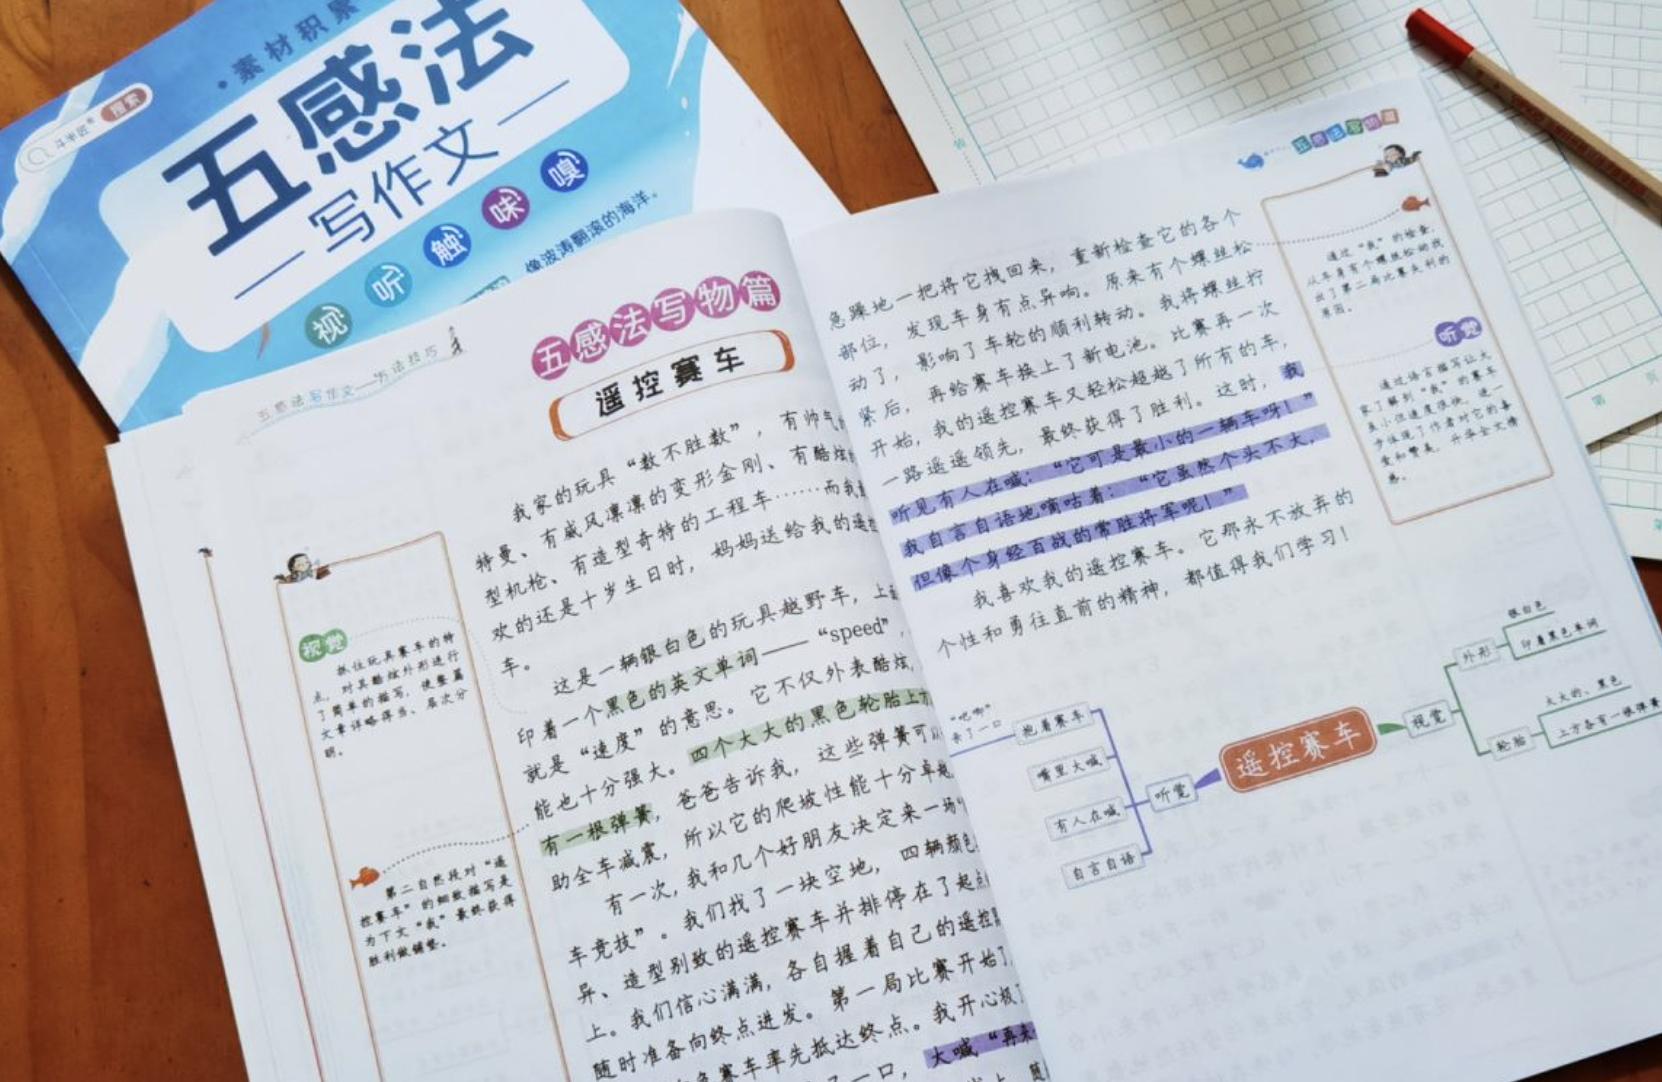 素材积累
斗半匠
五感法
写作文
视 听 触 味 嗅
像波涛翻滚的海洋。
五感法写作文——方法技巧
五感法写物篇
遥控赛车
我家的玩具“数不胜数”，有帅气
特曼、有威风凛凛的变形金刚、有酷炫
型机枪、有造型奇特的工程车……而我
欢的还是十岁生日时，妈妈送给我的遥控
车。
这是一辆银白色的玩具越野车，上
印着一个黑色的英文单词——“speed”，
就是“速度”的意思。它不仅外表酷炫，
能也十分强大。四个大大的黑色轮胎上方
有一根弹簧，爸爸告诉我，这些弹簧可以
助全车减震，所以它的爬坡性能十分卓越
有一次，我和几个好朋友决定来一场“
车竞技”。我们找了一块空地，四辆颜色
异、造型别致的遥控赛车并排停在了起点
上。我们信心满满，各自握着自己的遥控
随时准备向终点进发。第一局比赛开始了
色赛车率先抵达终点。我开心极了
了一口，大喊“再来
视觉
抓住玩具赛车的特
点，对其酷炫外形进行
了简单的描写，使整篇
文章详略得当、层次分
明。
第二自然段对“遥
控赛车”的细致描写是
为下文“我”最终获得
胜利做铺垫。
五感法写物篇
急躁地一把将它拽回来，重新检查它的各个
部位，发现车身有点异响。原来有个螺丝松
动了，影响了车轮的顺利转动。我将螺丝拧
紧后，再给赛车换上了新电池。比赛再一次
开始，我的遥控赛车又轻松超越了所有的车，
一路遥遥领先，最终获得了胜利。这时，我
听见有人在喊：“它可是最小的一辆车呀！”
我自言自语地嘀咕着：“它虽然个头不大，
但像个身经百战的常胜将军呢！”
我喜欢我的遥控赛车。它那永不放弃的
个性和勇往直前的精神，都值得我们学习！
通过“我”的检查，
从车身有个螺丝松动找
出了第二局比赛失利的
原因。
听觉
通过语言描写让大
家了解到“我”的赛车
虽小但速度很快，进一
步体现了作者对它的喜
爱和赞美，升华全文情
感。
遥控赛车
视觉
外形
银白色
印着黑色单词
轮胎
大大的、黑色
上方各有一根弹簧
听觉
抱着赛车
“吧唧”
亲了一口
嘴里大喊
有人在喊
自言自语